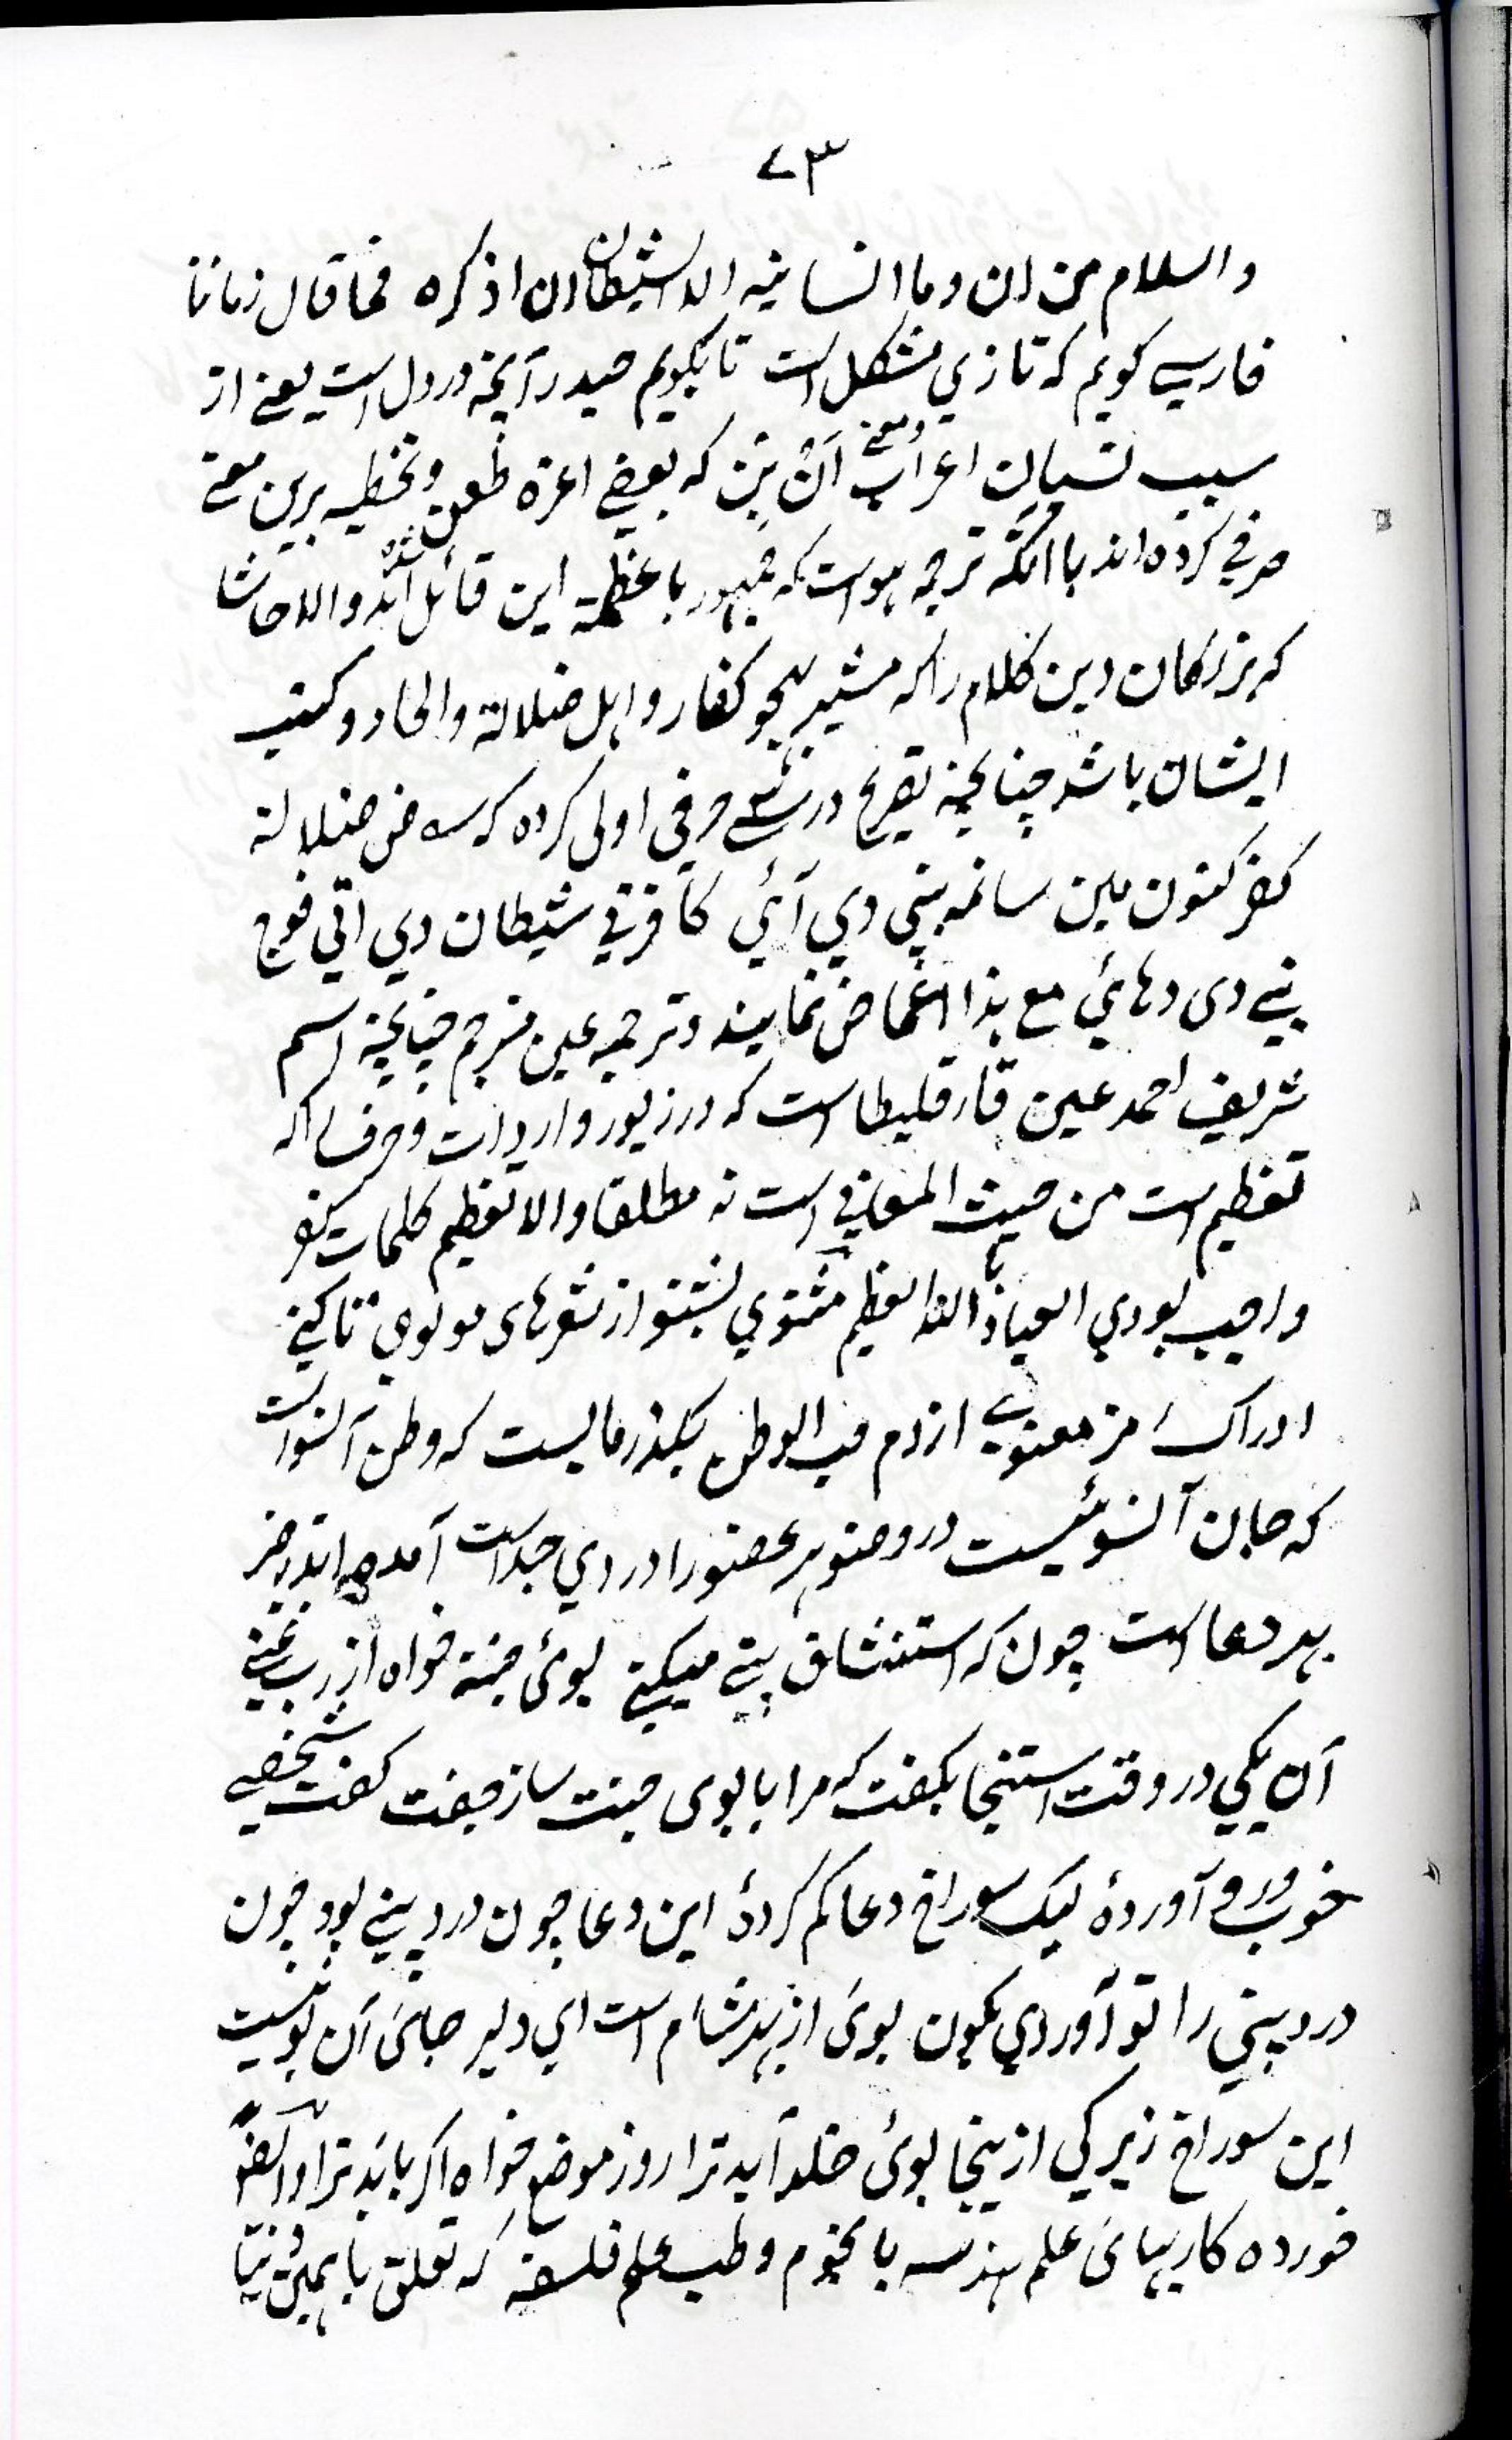 ٧٣
والسلام من ان وما انسانيه الا الشيطان ان اذكره فما قال زماننا
فارسي كويم كه تازي مشكل است تا بكويم حيدر آنچه در دل است يعنے از
سبب نسيان اعراب ومعنے اَنْ بَيْن كه بعضے اعزه طعن وتخطيه برين معنے
حرفي كرده اند باانكه ترجمه هو است كه جمهور باعظمة اين قائل شده اند والا حاشا
كه بزركان دين كلام را كه مشير بهجو كفار واهل ضلالة والحاد وكتب
ايشان باشد چنانچه تصريح در حرفي اولى كرده كه سه ضلالة
كفر كنون مين سانمه پني دي آئي كافرتي شيطان دي اتي فوج
پنے دى دهائي مع هذا اغماض نمايند وترجمه عين مترجم چنانچه اسم
شريف احمد عين فارقليطا است كه در زبور وارد است وحرف را كه
تعظيم است من حيث المعاني است نه مطلقا والا تعظيم كلمات كفر
واجب بودي العياذ بالله العظيم مثنوي بشنو از شعرهاى مولوي تا كني
ادراك رمز معنوي از دم حب الوطن بكذر مايست كه وطن آنسو است
كه جان آنسوئيست در وضو هر عضو را وردي جداست آمده اندر خبر
بهر دعا است چون كه استنشاق بيني ميكني بوئ جنة خواه از رب غني
آن يكي در وقت استنجا بكفت كه مرا با بوى جنت ساز جفت كفت شخصے
خوب ورد آوردهٔ ليك سوراخ دعا كم كردهٔ اين دعا چون ورد بيني بود چون
ورد بيني را تو آوردي بكون بوئ از بهر مشام است اي دلير جاىٔ آن بو نيست
اين سوراخ زير كي ازينجا بوئ خلد آيد ترا رو ز موضع خواه اكر بايد ترا وايضاً
خورده كاريهاىٔ علم هندسه با نجوم وطب علم فلسفه كه تعلق با همين دنيا